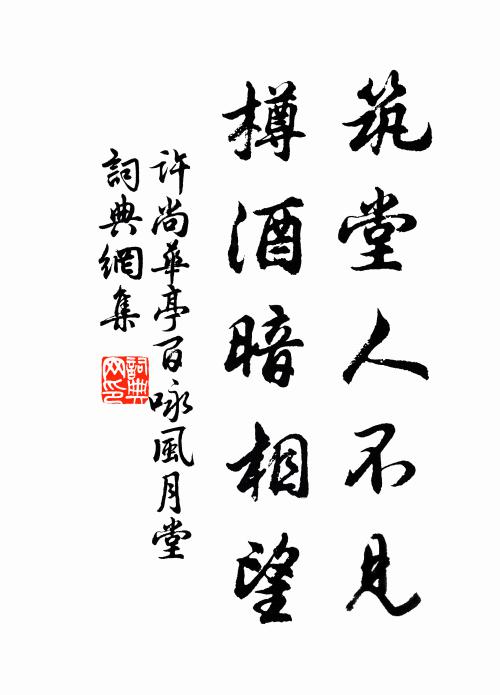 筑堂人不見
樽酒暗相望
許尚華亭百咏風月堂
詞典網集
詞典
网印